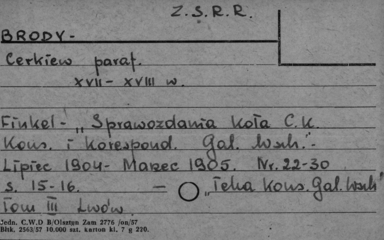 Z.S.R.R.
BRODY-
Cerkiew paraf.
XVII-XVIII w.
Finkel- „Sprawozdania Koła C.K.
Kons. i Korespond. Gal. Wsch."-
Lipiec 1904- Marzec 1905. Nr. 22-30
s. 15-16. — „Teka Kons. Gal. Wsch"
Tom III Lwów.
Jedn. C.W.D B/Olsztyn Zam 2776 /on/57
Błsk. 2563/57 10.000 szt. karton kl. 7 g 220.